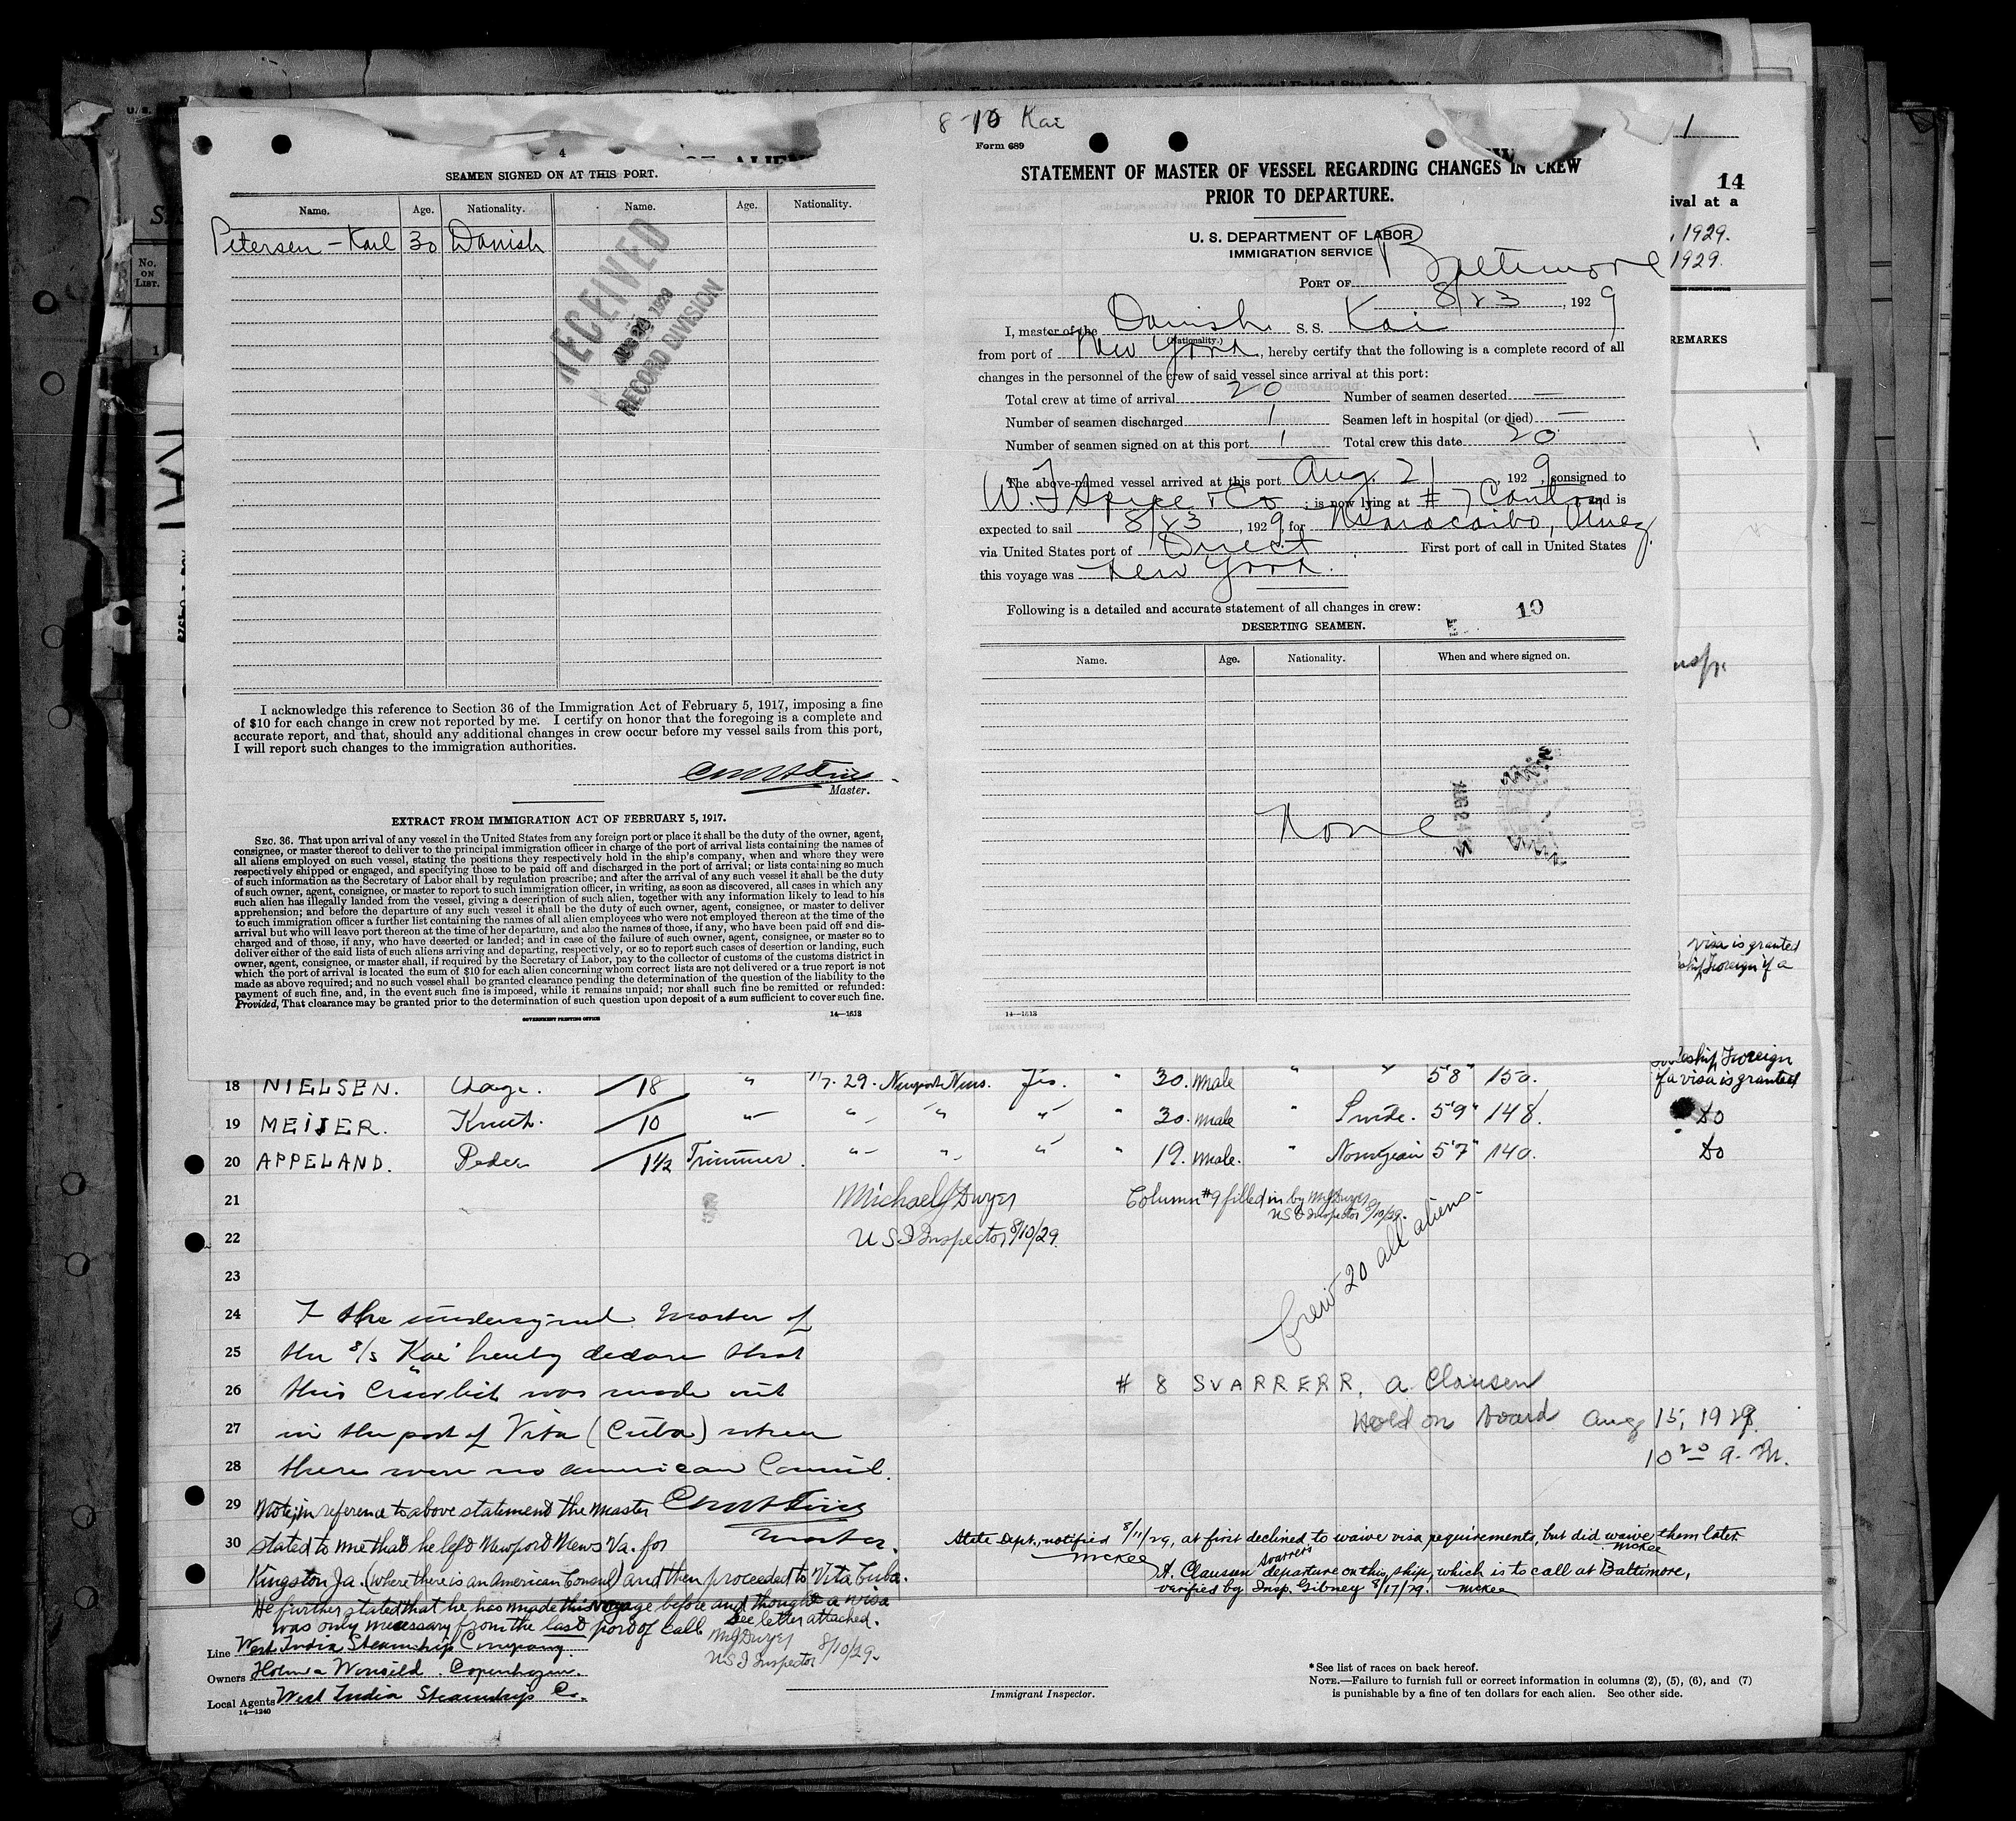 8-10 Kai
Form 689
4
SEAMEN SIGNED ON AT THIS PORT.
Name. Age. Nationality. Name. Age. Nationality.
Petersen - Karl 30 Danish
RECEIVED
1929
RECORD DIVISION
I acknowledge this reference to Section 36 of the Immigration Act of February 5, 1917, imposing a fine
of $10 for each change in crew not reported by me. I certify on honor that the foregoing is a complete and
accurate report, and that, should any additional changes in crew occur before my vessel sails from this port,
I will report such changes to the immigration authorities.
Master.
EXTRACT FROM IMMIGRATION ACT OF FEBRUARY 5, 1917.
SEC. 36. That upon arrival of any vessel in the United States from any foreign port or place it shall be the duty of the owner, agent,
consignee, or master thereof to deliver to the principal immigration officer in charge of the port of arrival lists containing the names of
all aliens employed on such vessel, stating the positions they respectively hold in the ship's company, when and where they were
respectively shipped or engaged, and specifying those to be paid off and discharged in the port of arrival; or lists containing so much
of such information as the Secretary of Labor shall by regulation prescribe; and after the arrival of any such vessel it shall be the duty
of such owner, agent, consignee, or master to report to such immigration officer, in writing, as soon as discovered, all cases in which any
such alien has illegally landed from the vessel, giving a description of such alien, together with any information likely to lead to his
apprehension; and before the departure of any such vessel it shall be the duty of such owner, agent, consignee, or master to deliver
to such immigration officer a further list containing the names of all alien employees who were not employed thereon at the time of the
arrival but who will leave port thereon at the time of her departure, and also the names of those, if any, who have been paid off and dis-
charged and of those, if any, who have deserted or landed; and in case of the failure of such owner, agent, consignee, or master so to
deliver either of the said lists of such aliens arriving and departing, respectively, or so to report such cases of desertion or landing, such
owner, agent, consignee, or master shall, if required by the Secretary of Labor, pay to the collector of customs of the customs district in
which the port of arrival is located the sum of $10 for each alien concerning whom correct lists are not delivered or a true report is not
made as above required; and no such vessel shall be granted clearance pending the determination of the question of the liability to the
payment of such fine, and, in the event such fine is imposed, while it remains unpaid; nor shall such fine be remitted or refunded:
Provided, That clearance may be granted prior to the determination of such question upon deposit of a sum sufficient to cover such fine.
GOVERNMENT PRINTING OFFICE 14—1613
STATEMENT OF MASTER OF VESSEL REGARDING CHANGES IN CREW
PRIOR TO DEPARTURE.
U. S. DEPARTMENT OF LABOR
IMMIGRATION SERVICE
PORT OF Baltimore
8/23, 1929
I, master of the Danish S. S. Kai
(Nationality.)
from port of New York, hereby certify that the following is a complete record of all
changes in the personnel of the crew of said vessel since arrival at this port:
Total crew at time of arrival 20 Number of seamen deserted —
Number of seamen discharged 1 Seamen left in hospital (or died) —
Number of seamen signed on at this port 1 Total crew this date 20
The above-named vessel arrived at this port Aug. 21, 1929, consigned to
W. J. Spice & Co; is now lying at # 7 Canton and is
expected to sail 8/23, 1929, for Maracaibo, Venez.
via United States port of Direct. First port of call in United States
this voyage was New York.
Following is a detailed and accurate statement of all changes in crew: 10
DESERTING SEAMEN.
Name. Age. Nationality. When and where signed on.
None
AUG 24
14—1613
1
14
ival at a
, 1929.
1929.
REMARKS
nsp.
visa is granted
Foreign if a
Foreign
18 NIELSEN. Aage. 18 " 1/7. 29. Newport News. Yes. " 30. Male " " 5'8" 150. if a visa is granted
19 MEIJER. Knuth. 10 " " " " " 30. Male " Swede. 5'9" 148. Do
20 APPELAND. Peder 1½ Trimmer. " " " " 19. Male. " Norwegian 5'7" 140. Do
21 Michael J Dwyer Column #9 filled in by MJ Dwyer
US I Inspector 8/10/29.
22 U S I Inspector 8/10/29.
23
Crew 20 all aliens
24 I the undersigned Master of
25 the s/s "Kai" hereby declare that
26 this Crewlist was made out
27 in the port of Vita (Cuba) where
28 there were no american Consul.
# 8 SVARRERR, A. Clausen
Held on board Aug 15, 1929
10 20 a. M.
29 Note: in reference to above statement the master
Master.
30 stated to me that he left Newport News Va. for
Kingston Ja. (where there is an American Consul) and then proceeded to Vita Cuba.
He further stated that he has made this voyage before and thought a visa
was only necessary from the last port of call See letter attached.
MJ Dwyer 8/10/29.
US I Inspector
State Dept. notified 8/11/29, at first declined to waive visa requirements, but did waive them later.
McKee McKee
A. Clausen Svarrers departure on this ship, which is to call at Baltimore,
verified by Insp. Gibney 8/17/29. McKee
Line West India Steamship Company.
Owners Holm & Wonsild. Copenhagen.
Local Agents West India Steamship Co.
14—1240
Immigrant Inspector.
* See list of races on back hereof.
NOTE.—Failure to furnish full or correct information in columns (2), (5), (6), and (7)
is punishable by a fine of ten dollars for each alien. See other side.
No. ON LIST.
1